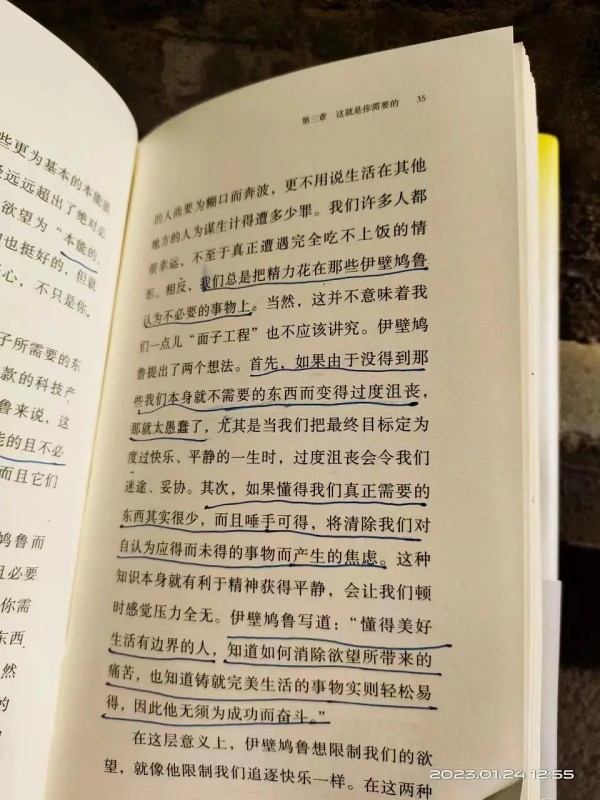 些更为基本的本能欲
远远超出了绝对必
欲望为“本能的，
也挺好的，但就
心，不只是你，
子所需要的东
款的科技产
鲁来说，这
能的且不必
而且它们
鸠鲁而
且必要
你需
东西
然
的
第三章 这就是你需要的 35
的人尚要为糊口而奔波，更不用说生活在其他
地方的人为谋生计得遭多少罪。我们许多人都
很幸运，不至于真正遭遇完全吃不上饭的情
形。相反，我们总是把精力花在那些伊壁鸠鲁
认为不必要的事物上。当然，这并不意味着我
们一点儿“面子工程”也不应该讲究。伊壁鸠
鲁提出了两个想法。首先，如果由于没得到那
些我们本身就不需要的东西而变得过度沮丧，
那就太愚蠢了，尤其是当我们把最终目标定为
度过快乐、平静的一生时，过度沮丧会令我们
迷途、妥协。其次，如果懂得我们真正需要的
东西其实很少，而且唾手可得，将清除我们对
自认为应得而未得的事物而产生的焦虑。这种
知识本身就有利于精神获得平静，会让我们顿
时感觉压力全无。伊壁鸠鲁写道：“懂得美好
生活有边界的人，知道如何消除欲望所带来的
痛苦，也知道铸就完美生活的事物实则轻松易
得，因此他无须为成功而奋斗。”
在这层意义上，伊壁鸠鲁想限制我们的欲
望，就像他限制我们追逐快乐一样。在这两种
2023.01.24 12:55